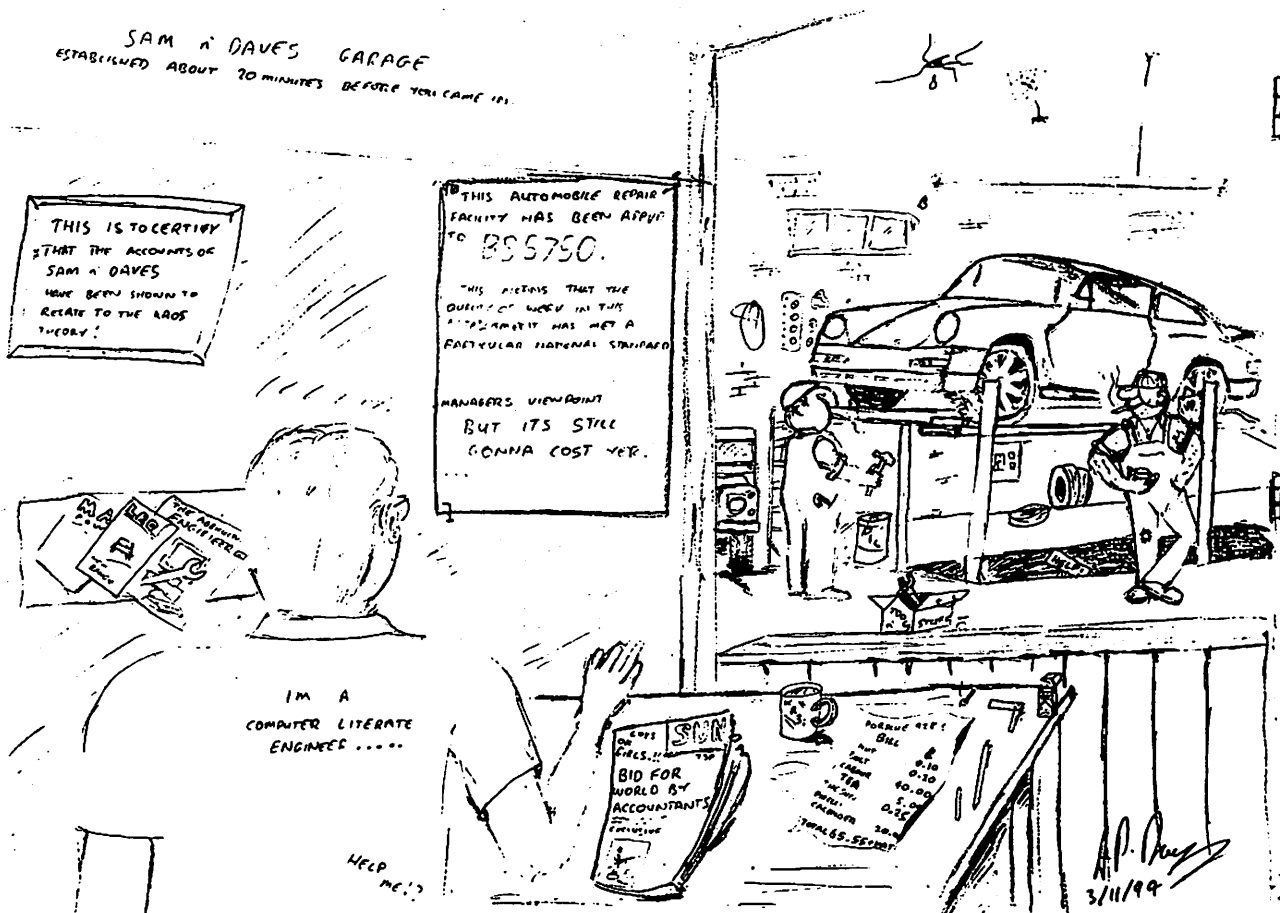 SAM n' DAVES GARAGE
ESTABLISHED ABOUT 20 MINUTES BEFORE YOU CAME IN.
THIS IS TO CERTIFY
THAT THE ACCOUNTS OF
SAM n' DAVES
HAVE BEEN SHOWN TO
RELATE TO THE KAOS
THEORY!
THIS AUTOMOBILE REPAIR
FACILITY HAS BEEN APPVE
TO BS5750.
THIS MEANS THAT THE
QUALITY OF WORK IN THIS
HAS MET A
PARTICULAR NATIONAL STANDARD
MANAGERS VIEWPOINT
BUT ITS STILL
GONNA COST YER.
MA
LAQ
THE
ENGINEER
IM A
COMPUTER LITERATE
ENGINEER.....
HELP
ME!?
SUN
GIRLS!!
BID FOR
WORLD BY
ACCOUNTANTS
EXCLUSIVE
HELP
TOO
STUFF
PORSCHE
BILL £
NUT 0.10
0.20
LABOUR 40.00
TEA 5.00
0.25
CALENDER 20.0
TOTAL 65.55+VAT
3/11/94